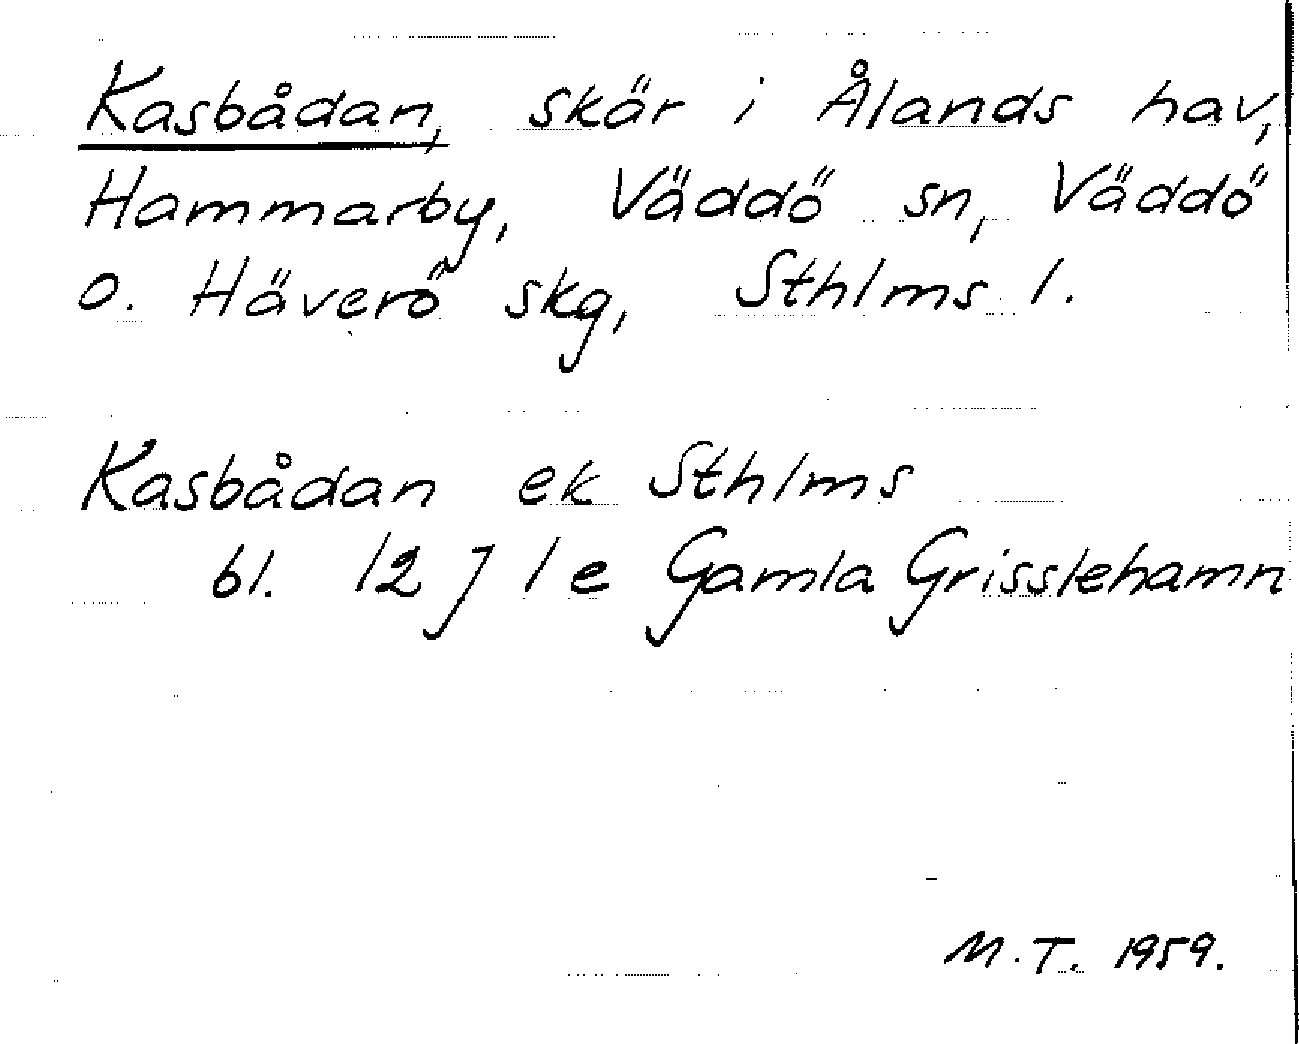 Kasbådan, skär i Ålands hav,
Hammarby, Väddö sn, Väddö
o. Häverö skg, Sthlms l.
Kasbådan ek Sthlms
bl. 12 J 1 e Gamla Grisslehamn
M.T. 1959.